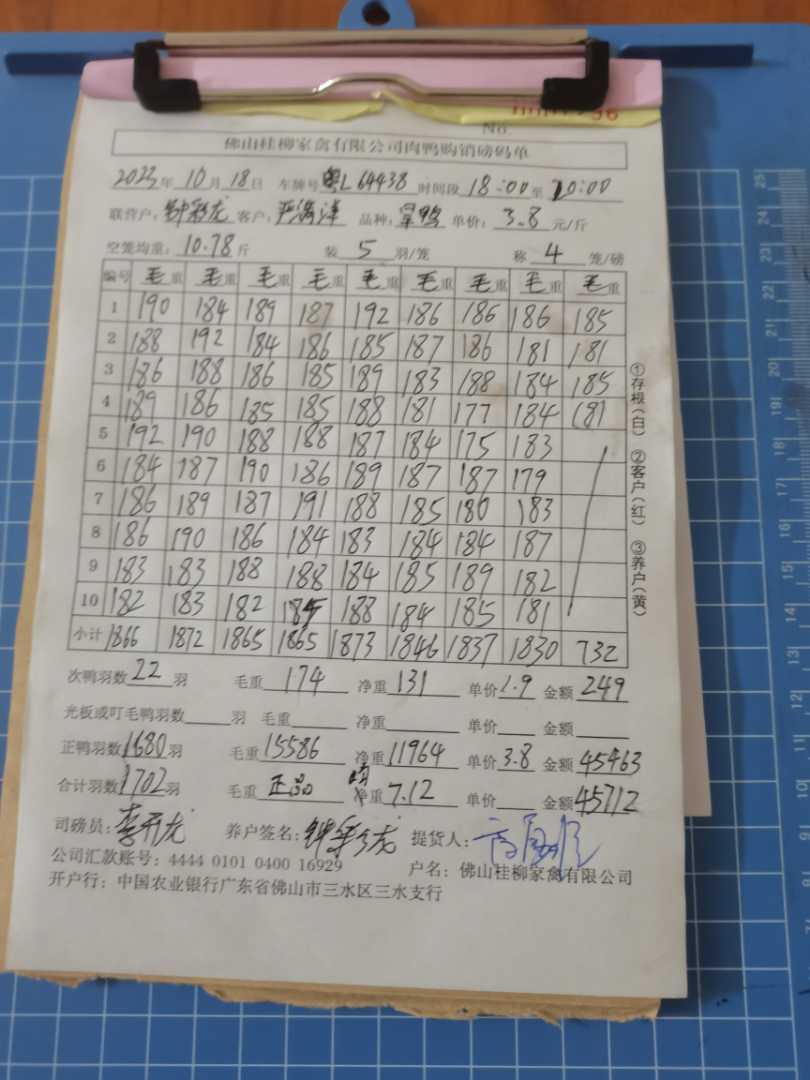 No.
佛山桂柳家禽有限公司肉鸭购销磅码单
2023年10月18日 车牌号粤L64438 时间段18:00至20:00
联营户: 钟彩龙 客户: 严满洋 品种: 旱鸭 单价: 3.8 元/斤
空笼均重: 10.78斤 装 5 羽/笼 称 4 笼/磅
编号 毛重 毛重 毛重 毛重 毛重 毛重 毛重 毛重 毛重
1 190 184 189 187 192 186 186 186 185
2 188 192 184 186 185 187 186 181 181
3 186 188 186 185 189 183 188 184 185
4 189 186 185 185 188 181 177 184 181
5 192 190 188 188 187 184 175 183
6 184 187 190 186 189 187 187 179
7 186 189 187 191 188 185 180 183
8 186 190 186 184 183 184 184 187
9 183 183 188 188 184 185 189 182
10 182 183 182 185 188 184 185 181
小计 1866 1872 1865 1865 1873 1846 1837 1830 732
次鸭羽数22羽 毛重174 净重131 单价1.9 金额249
光板或叮毛鸭羽数 羽 毛重 净重 单价 金额
正鸭羽数1680羽 毛重15586 净重11964 单价3.8 金额45463
合计羽数1702羽 毛重正品 净重7.12 单价 金额45712
司磅员: 李开龙 养户签名: 钟彩龙 提货人:
公司汇款账号: 4444 0101 0400 16929 户名: 佛山桂柳家禽有限公司
开户行: 中国农业银行广东省佛山市三水区三水支行
①存根(白) ②客户(红) ③养户(黄)